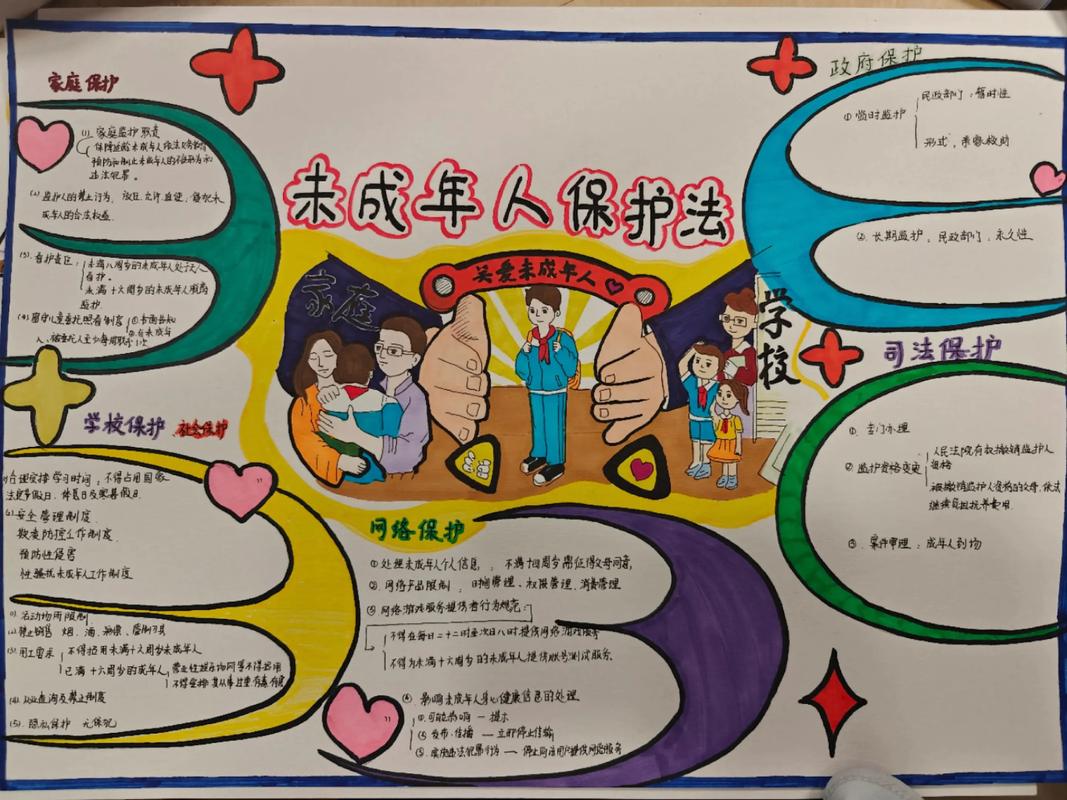 未成年人保护法
关爱未成年人
家庭
学校
家庭保护
(1). 家庭监护职责
预防和制止未成年人的不良行为和
违法犯罪。
(2) 监护人的禁止行为
成年人的合法权益
(3). 看护责任:
未满八周岁的未成年人处于无人
看护。
未满十六周岁的未成年人脱离
监护
(4) 留守儿童委托照看制度
① 书面告知
学校保护
社会保护
合理安排学习时间: 不得占用国家
法定节假日、休息日及寒暑假日.
安全管理制度
预防性侵害
性骚扰未成年人工作制度
(1). 活动场所限制
(2) 禁止销售 烟、酒、彩票、管制刀具
(3). 用工需求
不得招用未满十六周岁未成年人
已满十六周岁的未成年人
(4). 从业查询及禁止制度
(5). 隐私保护
网络保护
① 处理未成年人个人信息: 不满十四周岁需征得父母同意
②. 网络产品限制: 时间管理、权限管理、消费管理
③ 网络游戏服务提供者行为规范:
不得在每日二十二时至次日八时提供网络游戏服务
不得为未满十六周岁的未成年人提供账号
④. 影响未成年人身心健康信息的处理
①. 可能影响 — 提示
发布、传播 — 立即停止传输
政府保护
① 临时监护
民政部门: 暂时性
形式:
②. 长期监护: 民政部门: 永久性
司法保护
①. 专门办理
② 监护资格变更
人民法院有权撤销监护人
资格
被撤销监护人资格的父母, 依法
继续负担抚养费用
③. 案件审理: 成年人到场